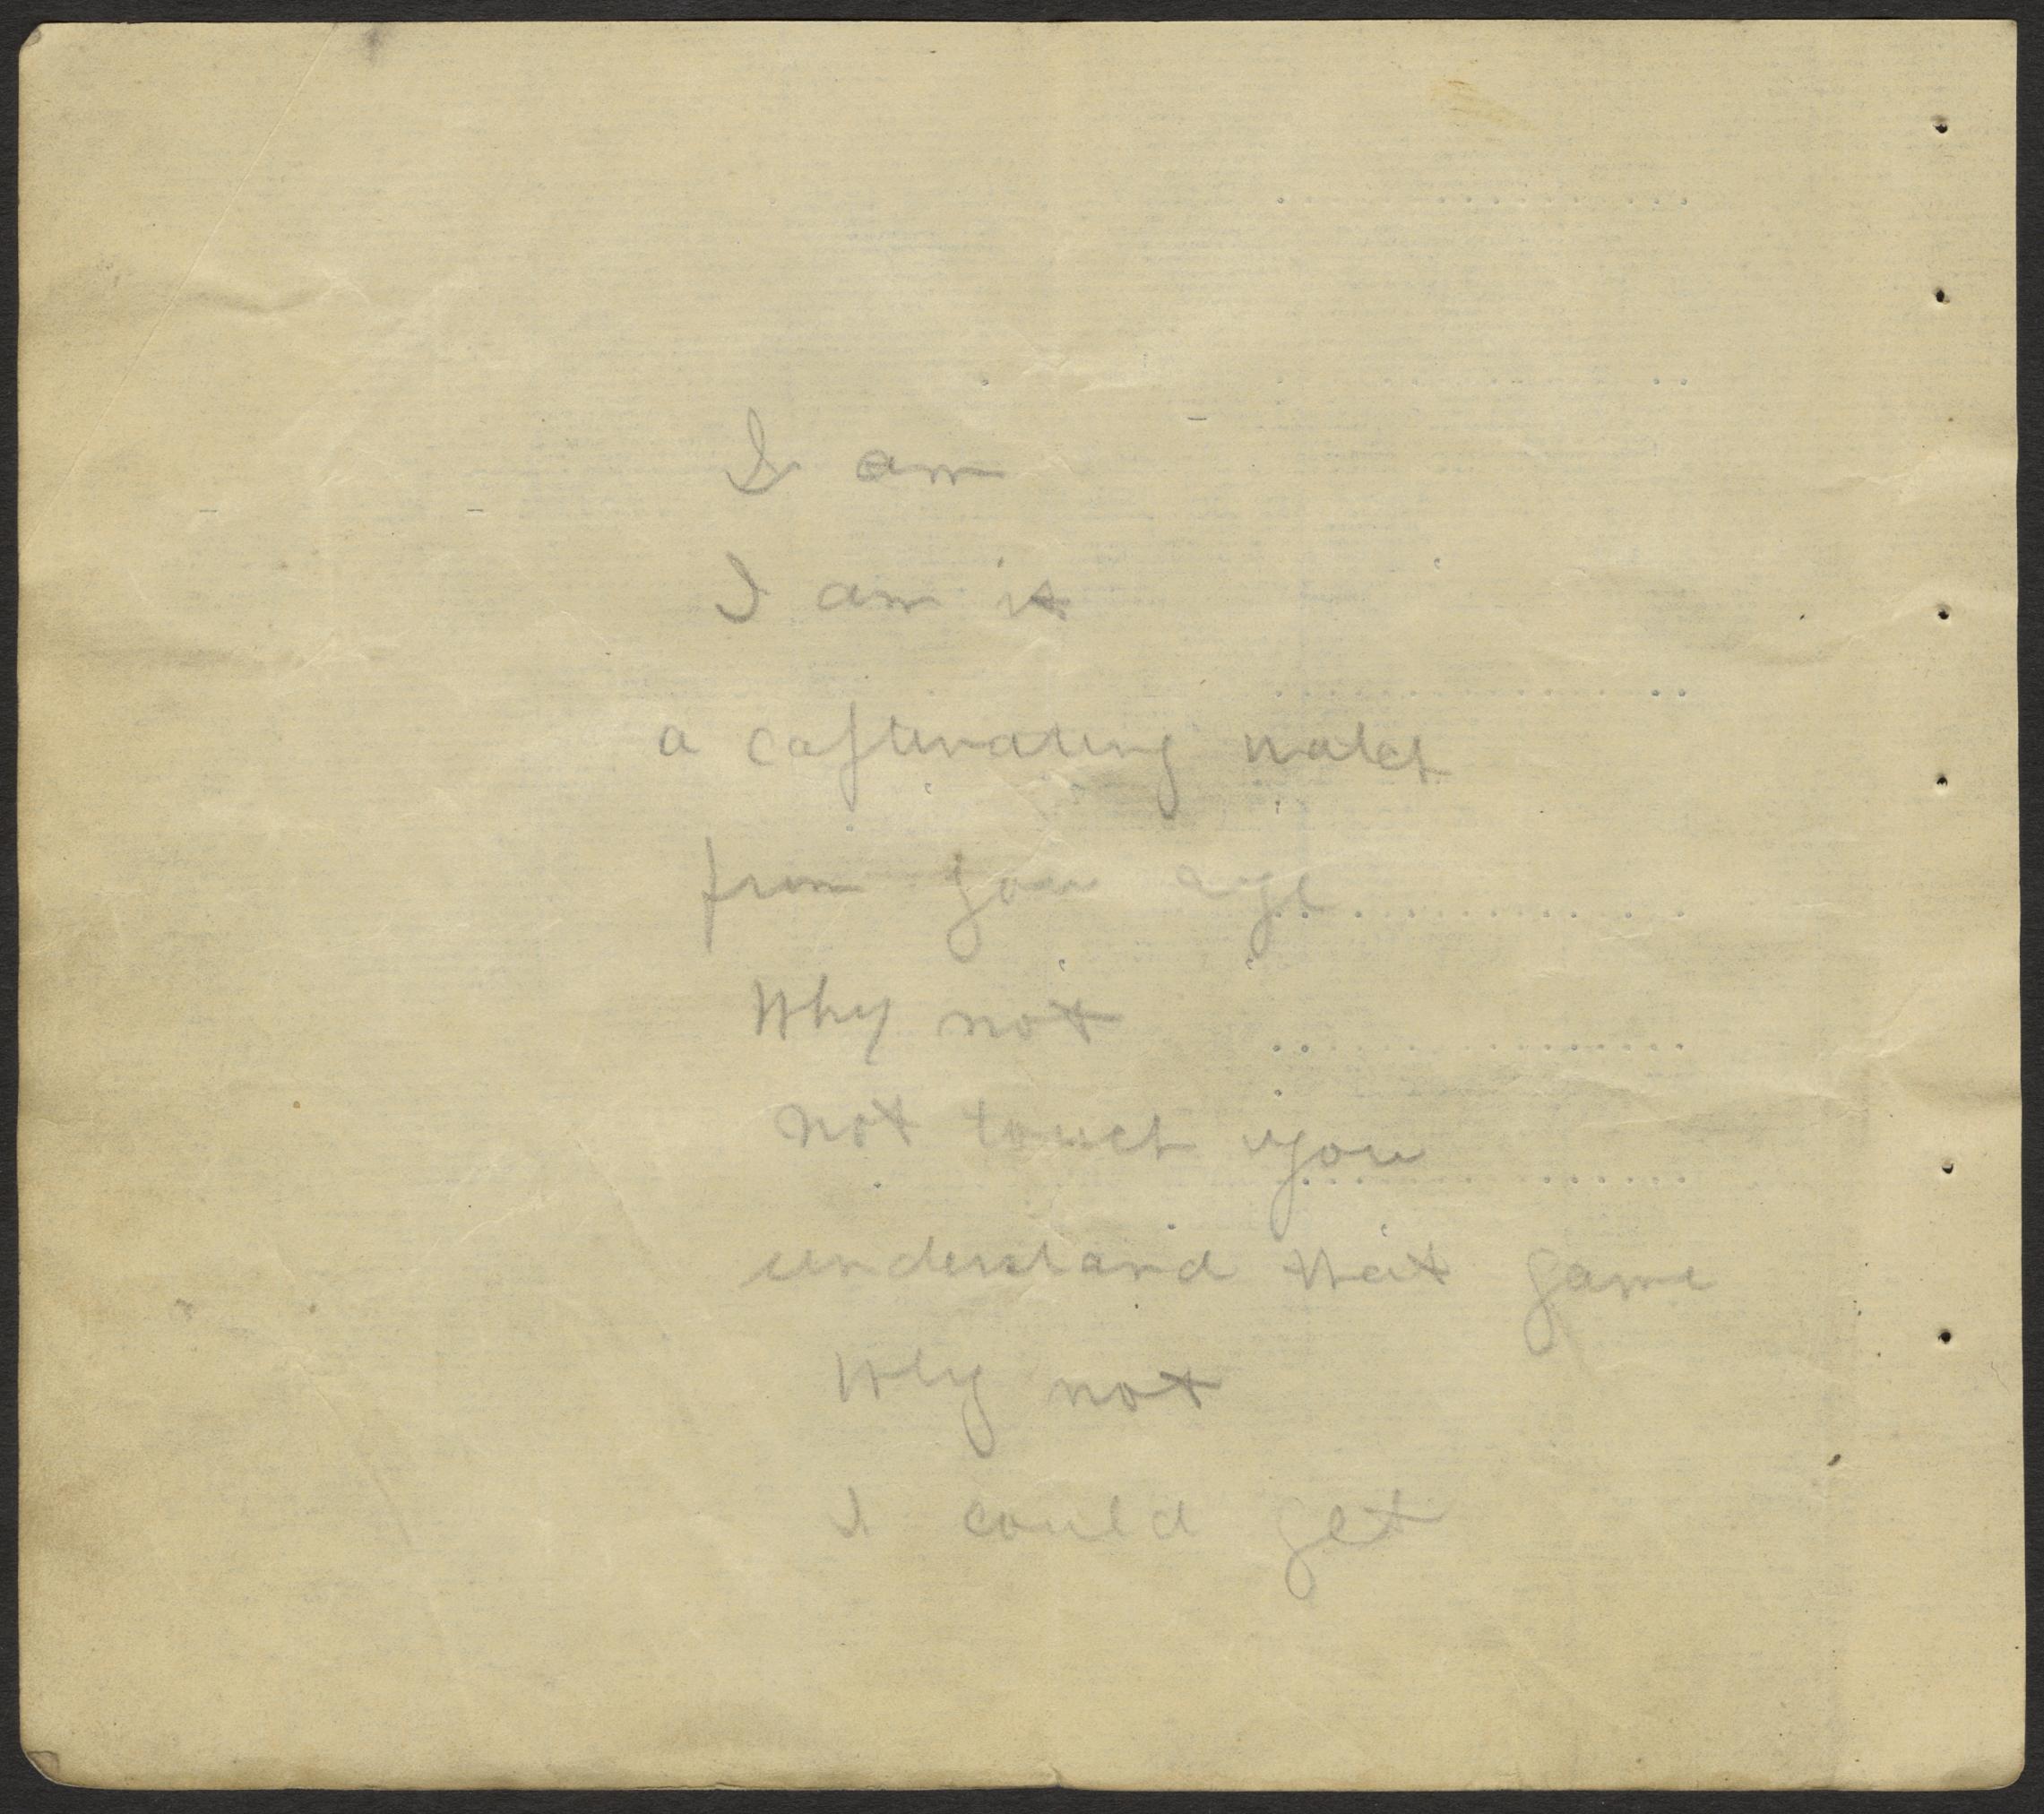 I am
I am it
a captivating watch
from you age
Why not
not touch you
understand that game
Why not
I could get